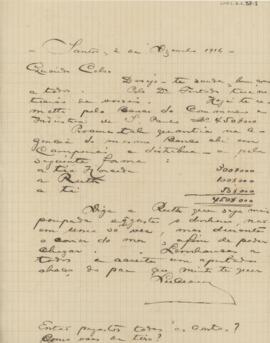 Santos, 2 de Agosto 1916
Querido Celso
Desejo-te saude, bem como
a todos. Pelo Dr. Furtado tive no-
ticias de vocês. Hoje te re-
metto pelo Banco do Commercio e
Industria de S. Paulo Rs 450$000
quantia na a-
gencia do mesmo Banco ahi em
Campinas e distribua-a pela
seguinte forma
a tia 300$000
a Ruth 100$000
a ti 50$000
450$000
Diga a Ruth que seja mais
poupada e gaste o dinheiro, não em
um mez só vez, mas durante
o correr do mez, afim de poder
chegar. Lembranças a
todos e aceite um apertado
abraço do pae que muito te quer
Estão pagas todas as contas?
Como vaes em tiro?